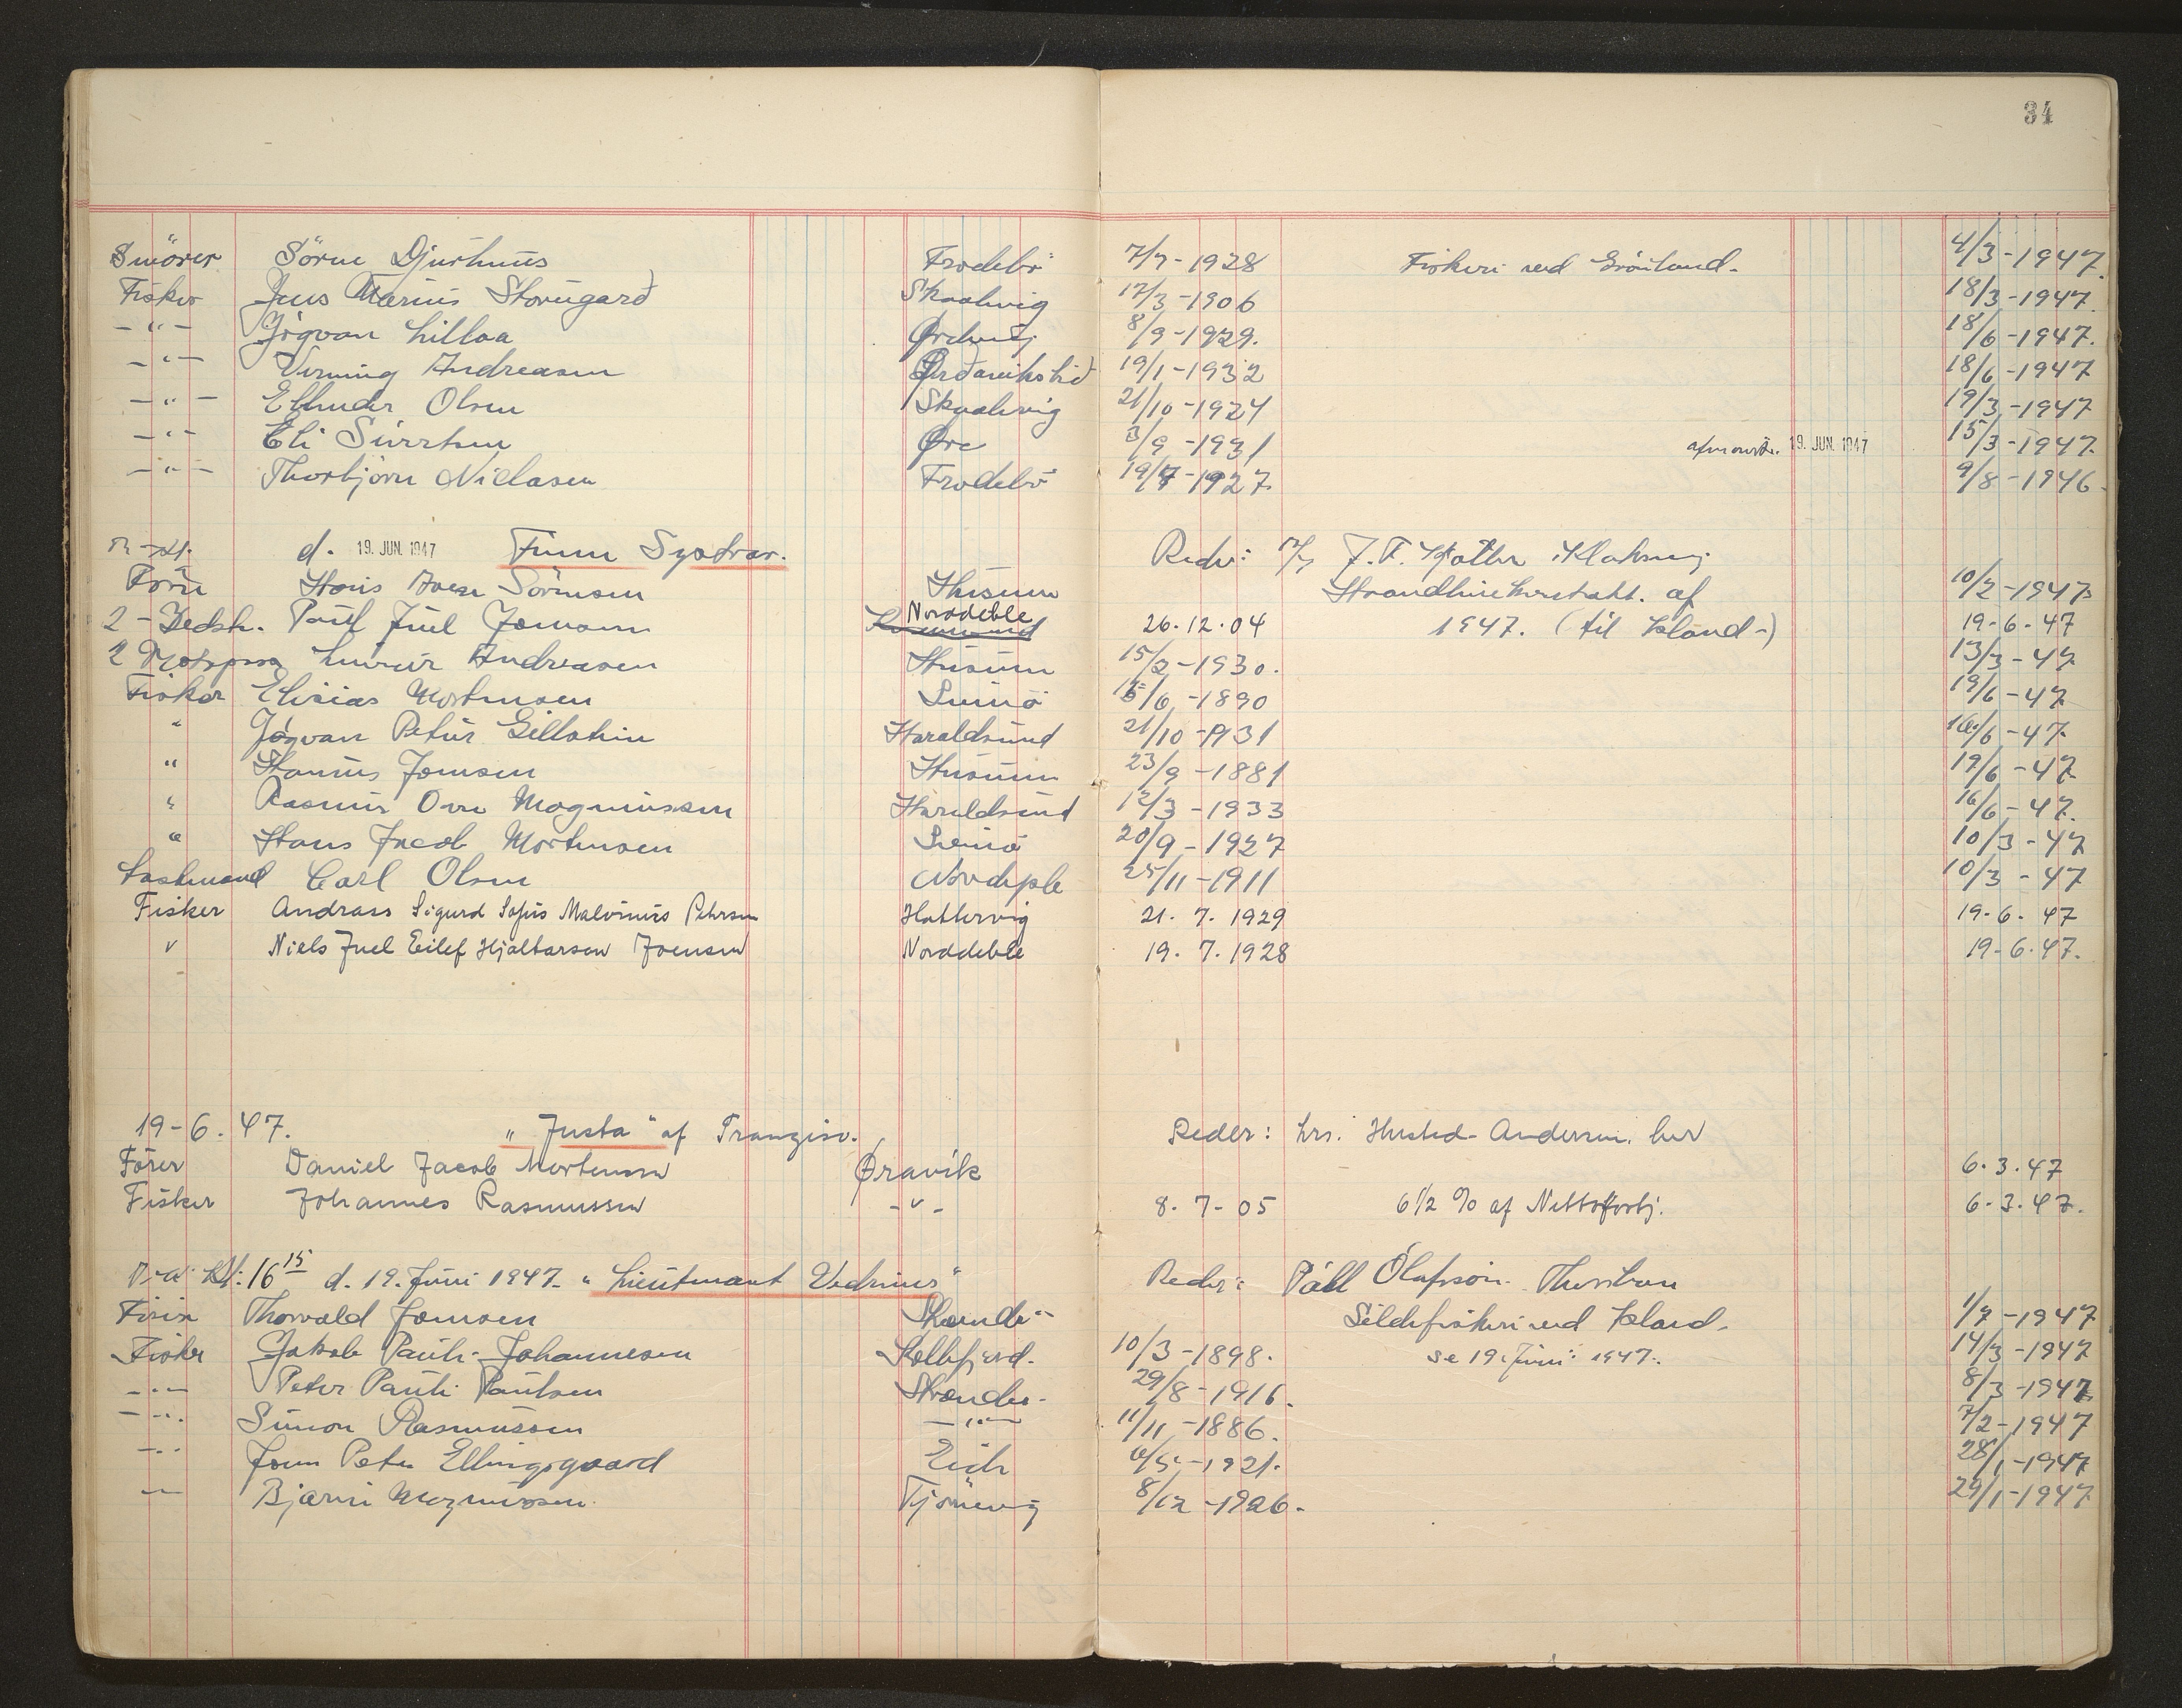 34
Smörer Sörne Djurhuus Frodebö 7/7-1928 Fiskeri ved Grönland. 4/3-1947
Fisker Jens Marius Storugarð Skaalvig 17/3-1906 18/3-1947
-"- Jógvan Lillaa Ördevig 8/9-1929. 18/6-1947.
-"- Verning Andreasen 19/1-1932 18/6-1947
-"- Olsen Skaalevig 21/10-1924 19/3-1947
-"- Eli Sivertsen Øre 3/9-1931 afmönstr. 19. JUN. 1947 15/3-1947
-"- Thorbjörn Niclasen Frodebö 19/7-1927 9/8-1946
d. 19. JUN. 1947 Reder: J.F. Kjölbro Klaksvig
Hans Sörensen Husum af 10/2-1947
2-Bedstm. Poul Juel Joensen Norddeble 26.12.04 1947. (til Island-) 19-6.47
2 Andreasen Husum 15/2-1930. 13/3-47
Fisker Elisias Mortensen Svinö 15/6-1890 19/6-47
" Jógvan Petur Gullaksen Haraldsund 21/10-1931 16/6-47
" Hanus Joensen Husum 23/9-1881 19/6-47
" Rasmus Ove Magnussen Haraldsund 12/3-1933 16/6-47.
" Hans Jacob Mortensen Svinö 20/9-1927 10/3-47
Lastmand Carl Olsen Norddeple 25/11-1911 10/3-47
Fisker Andrass Sigurd Sofus Malvinus Petersen Hattervig 21. 7. 1929 19-6. 47
" Niels Juel Eilef Hjaltarson Joensen Norddeble 19. 7. 1928 19-6.47.
19-6. 47. "Justa" af Frangisv. Reder: hrs. Husted-Andersen, her
Förer Daniel Jacob Mortensen Øravík 6.3.47
Fisker Johannes Rasmussen -"- 8. 7-05 6 1/2 % af Nettoforbj. 6.3.47.
Kl: 16 15 d. 19. Juni 1947. "Lieutenant Vedrines" Reder: Páll Ólafsson. Thorshavn
Förer Thorvald Joensen Strendö Sildefiskeri ved Island. 1/7-1947
Fisker Jakob Pauli Johannesen Kolbfjord. 10/3-1898. se 19. Juni 1947. 14/3-1947
-"- Peter Pauli Poulsen Strender 29/8-1916. 8/3-1947
-"- Simon Rasmussen -"- 11/11-1886. 7/2-1947
-"- Joen Peter Ellingsgaard Eide 6/5-1921. 28/1-1947
-"- Bjarni Magnussen Tjörnevig 8/12-1926. 29/1-1947